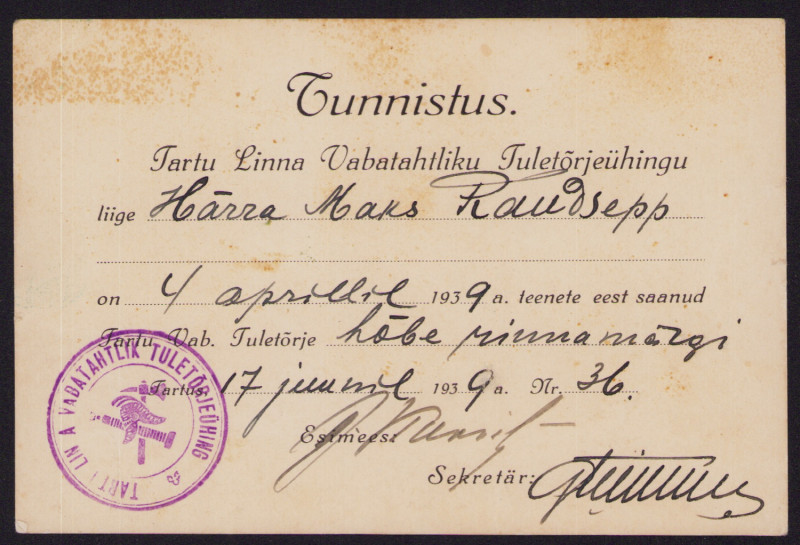 Tunnistus.
Tartu Linna Vabatahtliku Tuletõrjeühingu
liige Härra Maks Raudsepp
on 4 aprillil 1939 a. teenete eest saanud
Tartu Vab. Tuletõrje hõbe rinnamärgi
Tartus, 17 juunil 1939 a. Nr. 36.
Esimees:
Sekretär:
TARTU LINNA VABATAHTLIK TULETÕRJEÜHING